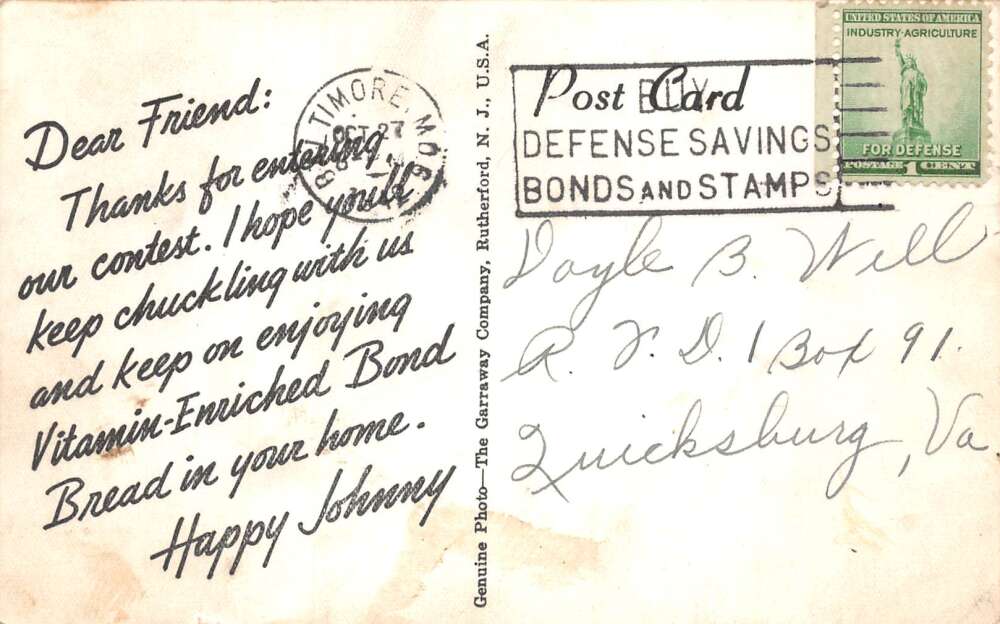 Dear Friend:
Thanks for entering
our contest. I hope you'll
keep chuckling with us
and keep on enjoying
Vitamin-Enriched Bond
Bread in your home.
Happy Johnny
BALTIMORE, MD.
OCT 27
Genuine Photo—The Garraway Company, Rutherford, N. J., U.S.A.
Post Card
BUY
DEFENSE SAVINGS
BONDS AND STAMPS
UNITED STATES OF AMERICA
INDUSTRY·AGRICULTURE
FOR DEFENSE
POSTAGE 1 CENT
Doyle B. Will
R. F. D. 1 Box 91.
Quicksburg, Va